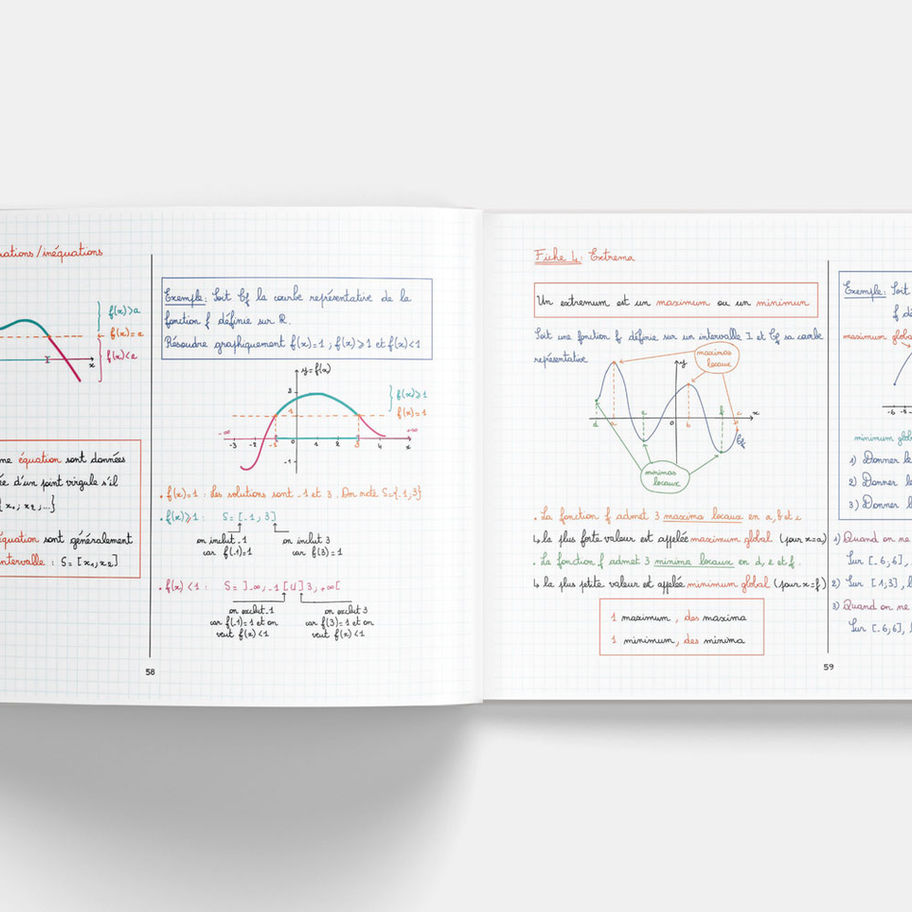 uations / inéquations
f(x)>a
f(x)=a
f(x)<a
x
une équation sont données
ée d'un point virgule s'il
{x₁; x₂;...}
équation sont généralement
intervalle : S= [x₁;x₂]
Exemple: Soit Cf la courbe représentative de la
fonction f définie sur ℝ.
Résoudre graphiquement f(x)=1 ; f(x)⩾1 et f(x)<1
y=f(x)
2
1
f(x)⩾1
f(x)=1
-∞
+∞
-3 -2 -1 0 1 2 3 4 x
-1
. f(x)=1 : Les solutions sont -1 et 3. On note S={-1;3}
. f(x)⩾1 : S= [-1;3]
on inclut -1 on inclut 3
car f(-1)=1 car f(3)=1
. f(x) <1 : S= ]-∞;-1[U]3;+∞[
on exclut -1 on exclut 3
car f(-1)=1 et on car f(3)=1 et on
veut f(x)<1 veut f(x)<1
58
Fiche 4: Extrema
Un extremum est un maximum ou un minimum
Soit une fonction f définie sur un intervalle I et Cf sa courbe
représentative
maximas
locaux
y
x
d a e 0 b f c
Cf
minimas
locaux
. La fonction f admet 3 maxima locaux en a, b et c
↳ la plus forte valeur est appelée maximum global (pour x=a)
. La fonction f admet 3 minima locaux en d, e et f.
↳ la plus petite valeur est appelée minimum global (pour x=f)
1 maximum, des maxima
1 minimum, des minima
59
Exemple: Soit
f dé
maximum glob
-6
minimum glob
1) Donner le
2) Donner le
3) Donner l
1) Quand on ne
Sur [-6;6],
2) Sur [1;3], l
3) Quand on ne
Sur [-6;6],